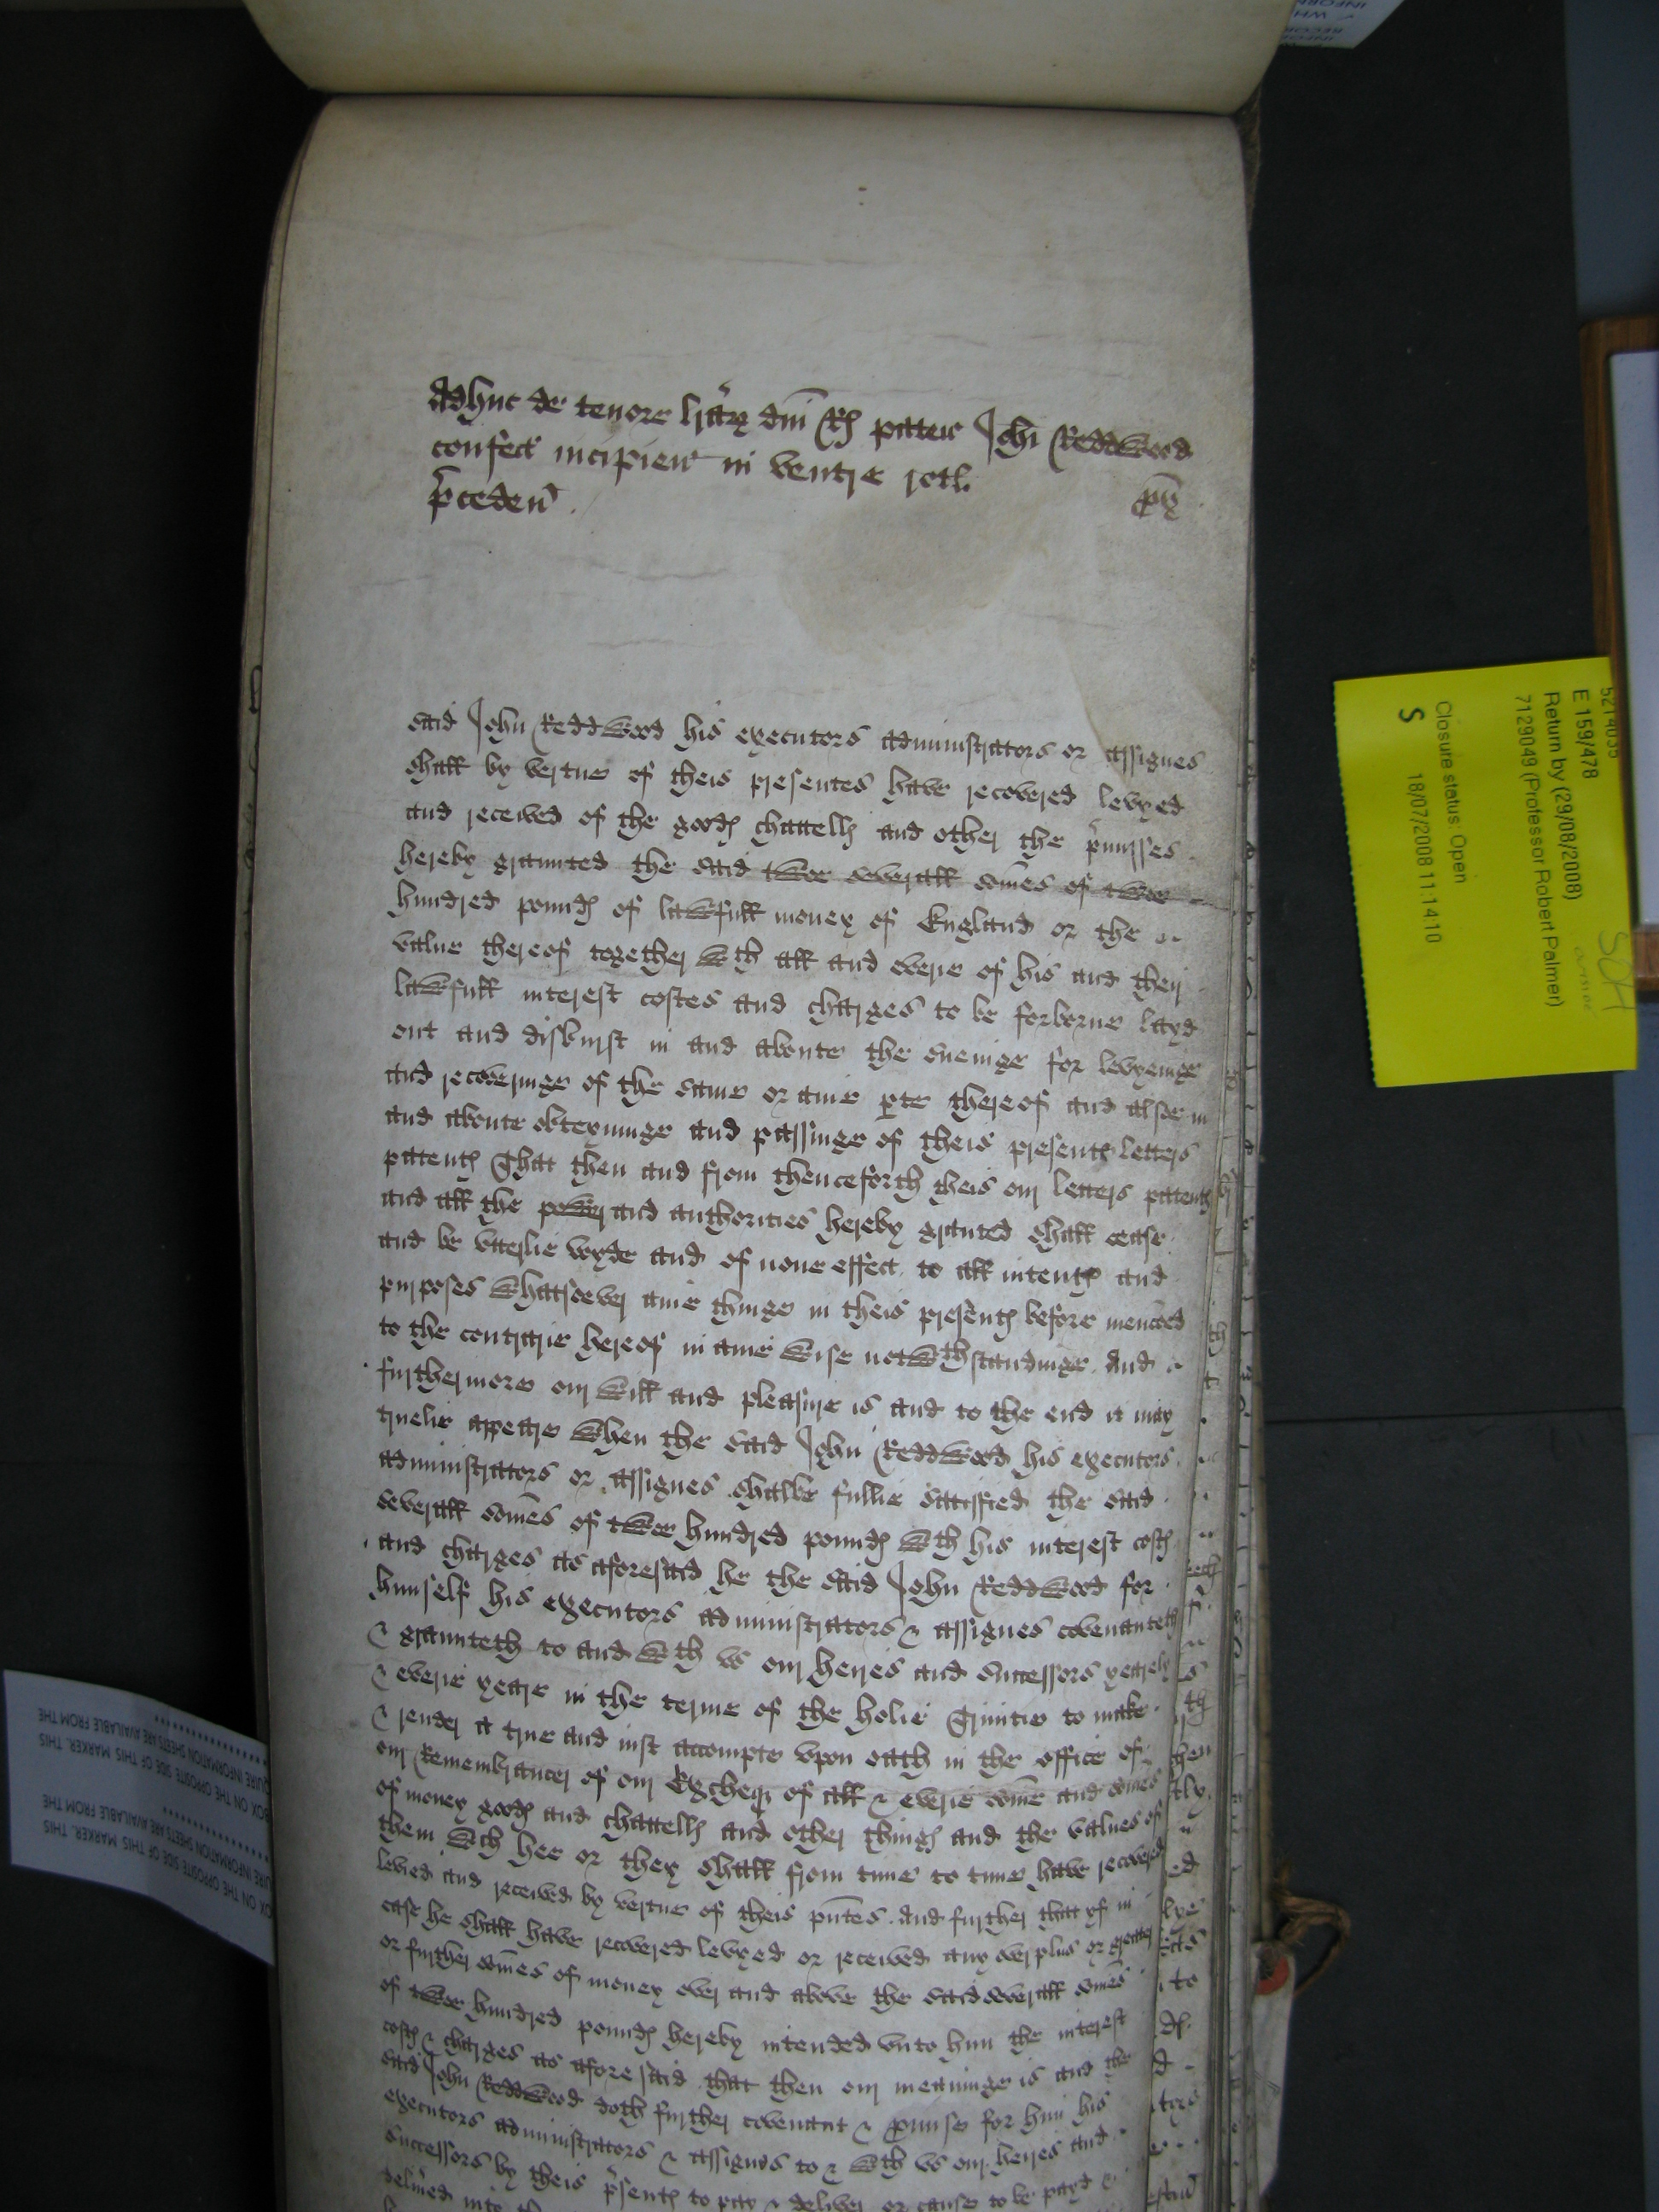 Adhuc de tenore lrarum dni R patten Johi Reddwood
confect incipien in ventre rotli
preceden
said John Reddwood his executors administrators or assignes
shall by vertue of theis presentes have recovered levyed
and received of the goodes chattells and other the pmisses
hereby graunted the said twoe severall somes of twoe
hundred poundes of lawfull money of England or the
value thereof together wth all and everie of his and their
lawfull interest costes and charges to be forborne layd
out and disburst in and aboute the sueinge for levyeinge
and recoveringe of the same or anie pte thereof and alsoe in
and aboute obteyninge and passinge of theis presentes letters
patents That then and from thenceforth theis our letters patents
and all the power and authorities hereby granted shall cease
and be utterlie voyde and of none effect to all intents and
purposes whatsoever anie thinge in theis presents before menconed
to the contrarie hereof in anie wise notwthstandinge And
furthermore our will and pleasure is and to the end it may
truelie appeare when the said John Reddwood his executors
administrators or assignes shalbe fullie satisfied the said
severall somes of twoe hundred poundes wth his interest costes
and charges as aforesaid he the said John Reddwood for
himself his executors administrators & assignes covenanteth
& graunteth to and wth us our heires and successors yearely
& everie yeare in the terme of the holie Trinitie to make
& render a true and iust accompte upon oath in the office of
our Remembrancer of our Exchequer of all & everie some and somes
of money goodes and chattells and other things and the values of
them wch hee or they shall from time to time have recovered
levied and received by vertue of theis pntes And further that yf in
case he shall have recovered levyed or received any overplus or greater
or further somes of money over and above the said severall somes
of twoe hundred poundes hereby intended unto him the interest
costes & charges as aforesaid that then our meaninge is and the
said John Reddwood doth further covenant & promise for him his
executors administrators & assignes to & wth us our heires and
successors by theis psents to pay & deliver or cause to be payd &
delivred into the
5214035
E 159/478
Return by (29/08/2008)
7129049 (Professor Robert Palmer)
Closure status: Open
18/07/2008 11:14:10
S
SOH
BOX ON THE OPPOSITE SIDE OF THIS MARKER. THIS
INFORMATION SHEETS ARE AVAILABLE FROM THE
BOX ON THE OPPOSITE SIDE OF THIS MARKER. THIS
INFORMATION SHEETS ARE AVAILABLE FROM THE